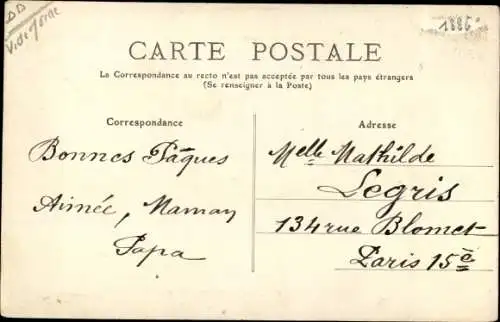 DD
1886
CARTE POSTALE
La Correspondance au recto n'est pas acceptée par tous les pays étrangers
(Se renseigner à la Poste)
Correspondance
Bonnes Pâques
Aimée, Maman
Papa
Adresse
Melle Mathilde
Legris
134 rue Blomet
Paris 15è